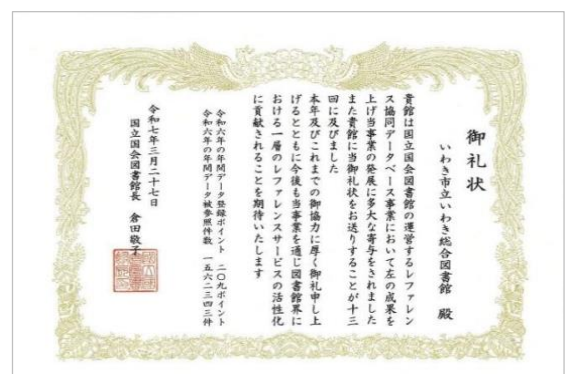 御礼状
いわき市立いわき総合図書館 殿
貴館は国立国会図書館の運営するレファレン
ス協同データベース事業において左の成果を
上げ当事業の発展に多大な寄与をされました
また貴館に当御礼状をお送りすることが十三
回に及びました
本年及びこれまでの御協力に厚く御礼申し上
げるとともに今後も当事業を通じ図書館界に
おける一層のレファレンスサービスの活性化
に貢献されることを期待いたします
令和六年の年間データ登録ポイント 二〇九ポイント
令和六年の年間データ被参照件数 一五六二三四三件
令和七年三月二十七日
国立国会図書館長 倉田敬子